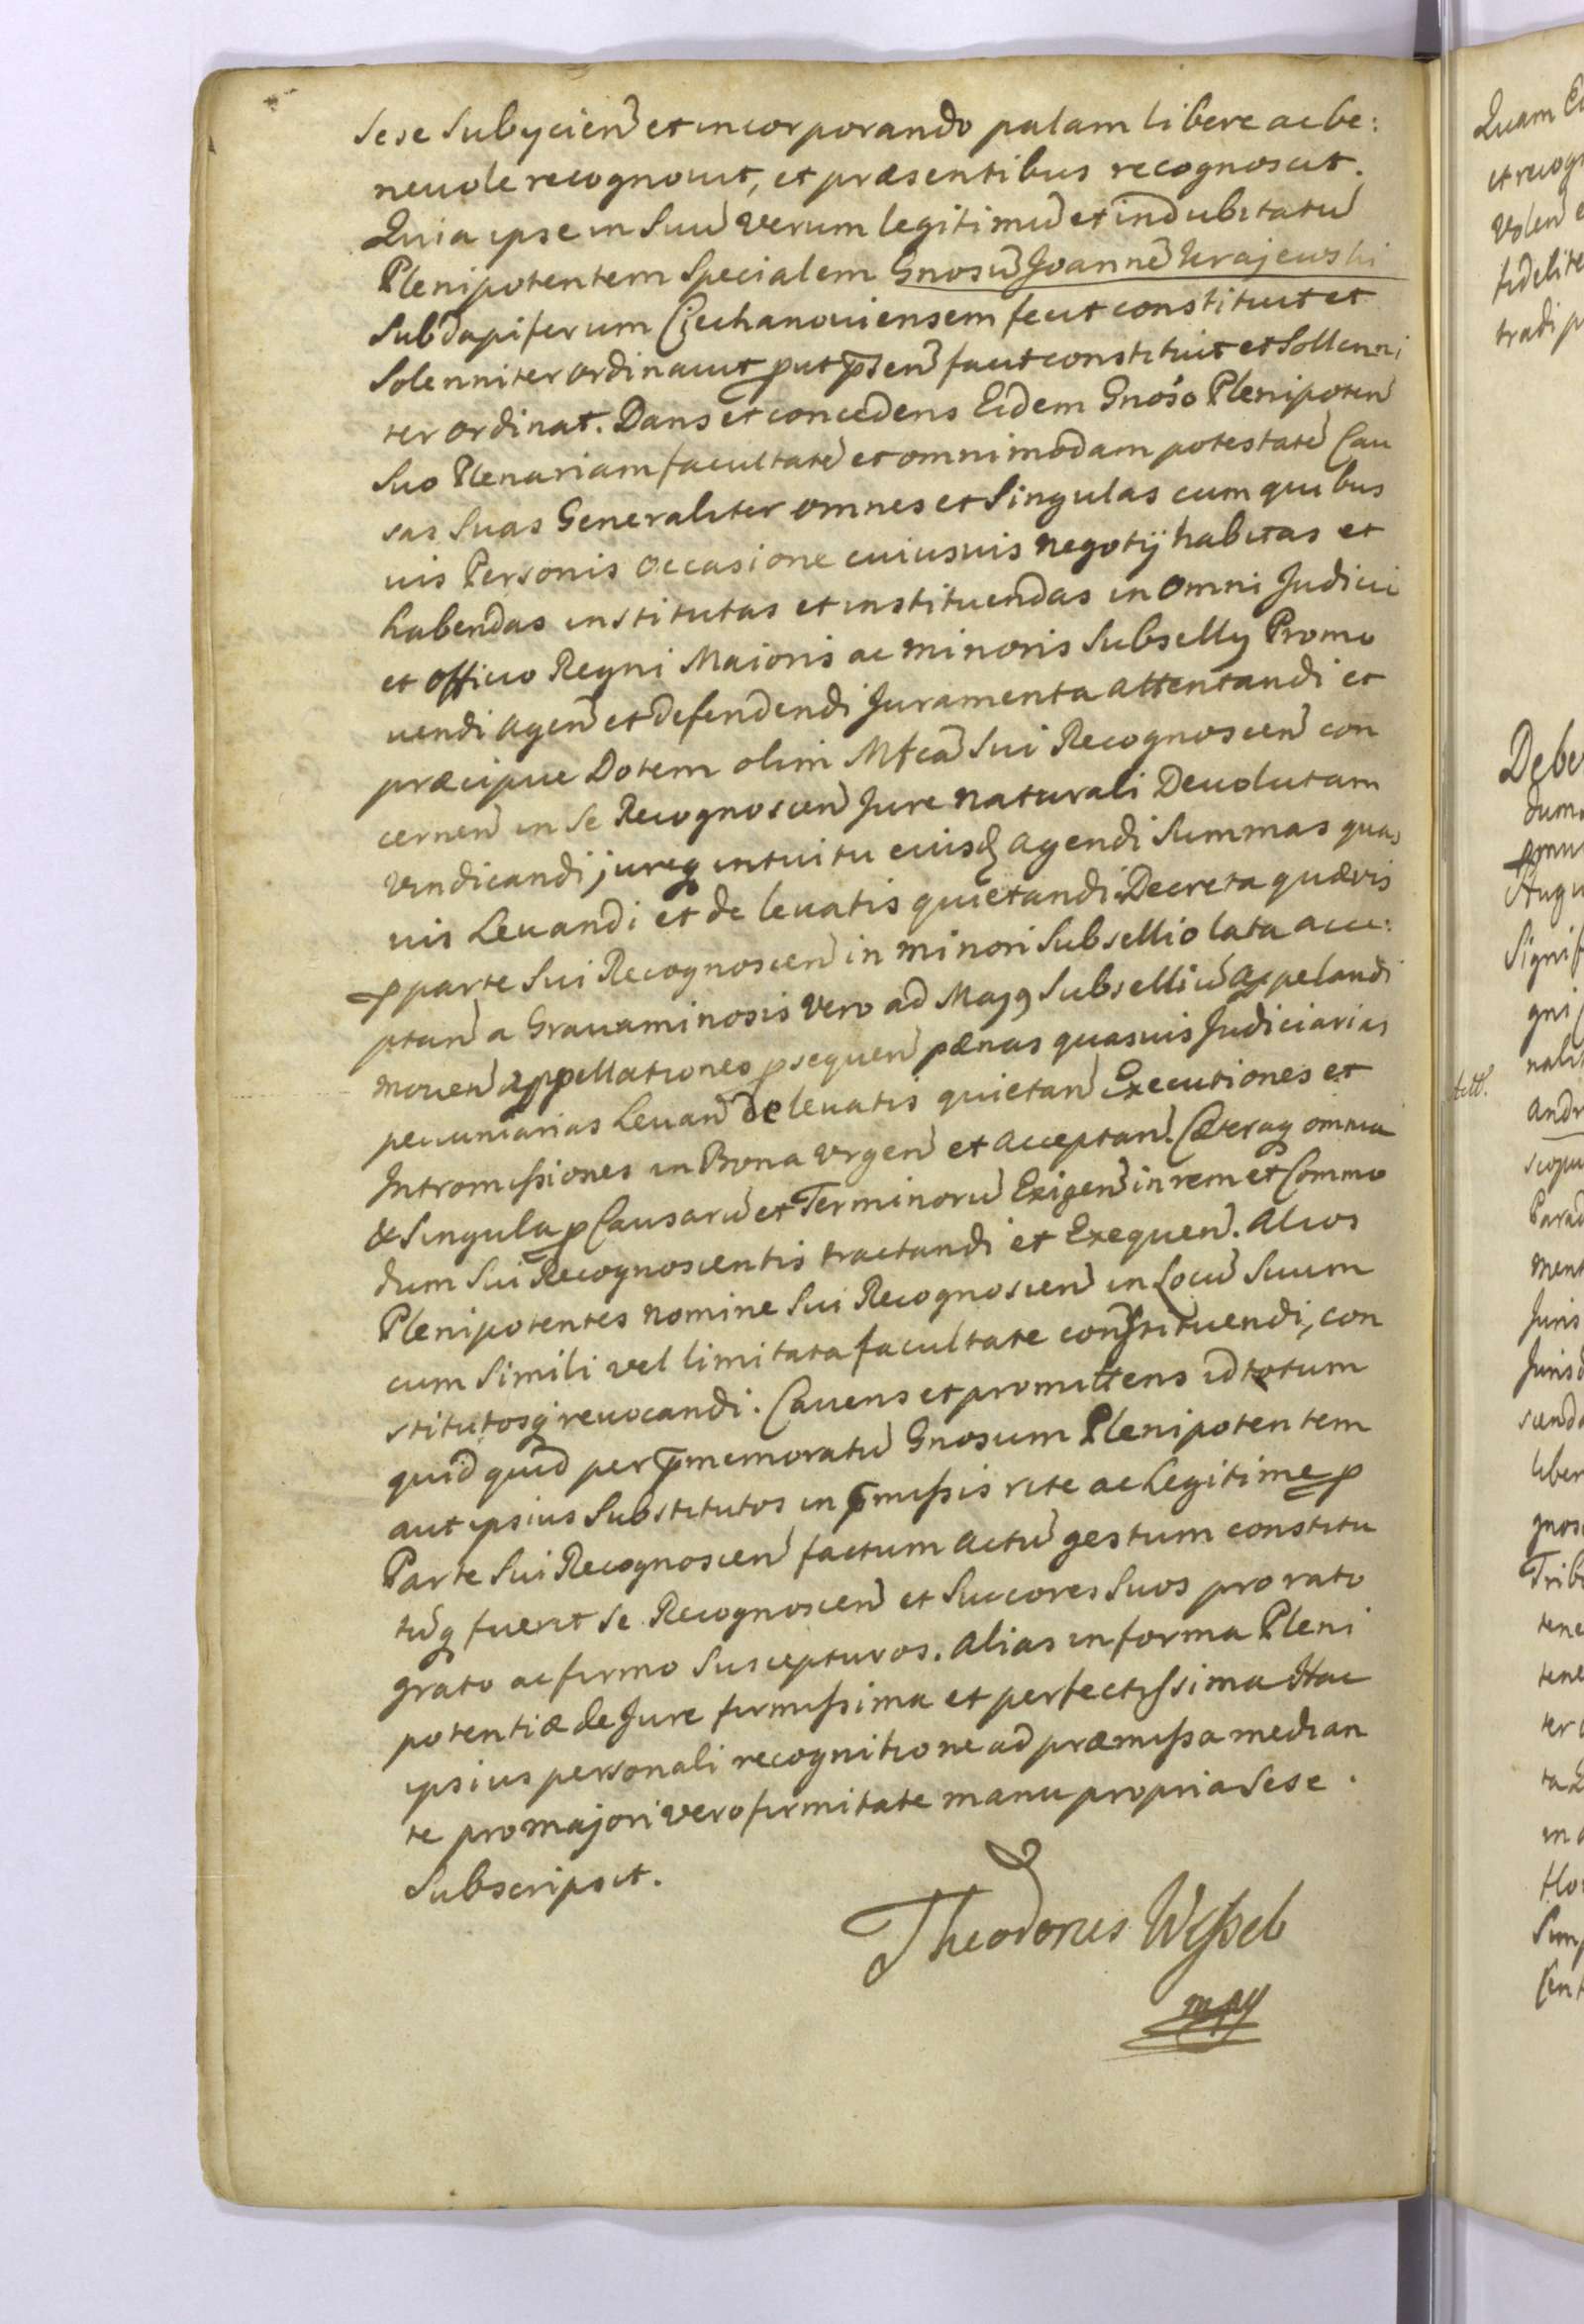 Sese Subÿcien et incorporando palam libere ac be:
neuole recognouit, et præsentibus recognoscit.
Quia ipse in Suu Verum legitimu et indubitatu
Plenipotentem Specialem Gnosu Joanne Krajewski
Subdapiferum Ciechanouiensem fecit constituit et
Solenniter ordinauit put psen facit constituit et Sollenni
ter ordinat. Dans et concedens Eidem Gnoso Plenipoten
Suo Plenariam facultate et omnimodam potestate Cau
sas Suas Generaliter omnes et Singulas cum quibus
uis Personis occasione cuiusuis negotÿ habitas et
habendas institutas et instituendas in omni Judicii
et officio Regni Maioris ac minoris Subsellÿ Promo
uendi agen et defendendi Juramenta attentandi et
præcipue Dotem olim Mfca Sui Recognoscen con
cernen in Se Recognoscen Jure naturali Deuolutam
vindicandi jureq intuitu eiusd agendi Summas quas
uis Leuandi et de leuatis quietandi Decreta quævis
p parte Sui Recognoscen in minori Subsellio lata acce:
ptan a Grauaminosis Vero ad Maj9 Subselliu appelandi
mouen appellationes psequen pænas quasuis Judiciarias
pecuniarias Leuan de leuatis quietan Executiones et
Intromissiones in Bona Vrgen et acceptan. Cæteraq omnia
& Singula p Causaru et Terminoru Exigen in rem et Commo
dum Sui Recognoscentis tractandi et Exequen. Alios
Plenipotentes nomine Sui Recognoscen in Locu Suum
cum Simili vel limitata facultate constituendi, con
stitutosq reuocandi. Cauens et promittens id totum
quid quid per pmemoratu Gnosum Plenipotentem
aut ipsius Substitutos in pmissis rite ac Legitime p
Parte Sui Recognoscen factum actu gestum constitu
tuq fuerit Se Recognoscen et Succores Suos pro rato
grato ac firmo Suscepturos. Alias in forma Pleni
potentiæ de Jure firmissima et perfectissima Hac
ipsius personali recognitione ad præmissa median
te pro majori vero firmitate manu propria Sese.
Subscripsit.
Theodorus Wessel
mpp